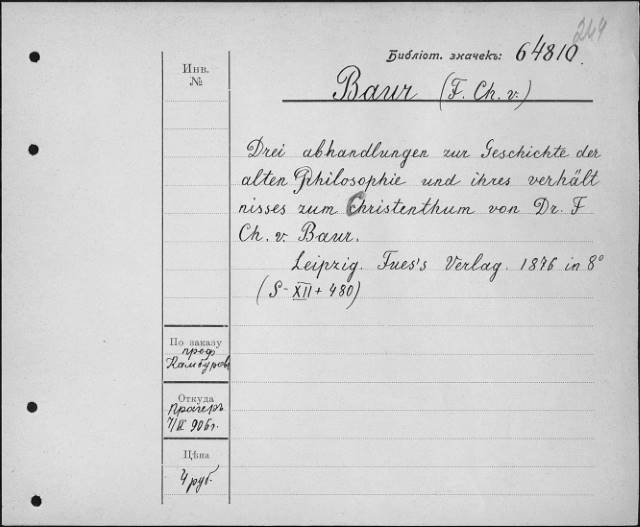 264
Библіот. значекъ: 64810.
Инв.
№
Baur (F. Ch. v.)
Drei abhandlungen zur Geschichte der
alten Philosophie und ihres verhält
nisses zum Christenthum von Dr. F
Ch. v. Baur.
Leipzig. Fues's Verlag. 1876 in 8°
(S- XII + 480)
По заказу
проф
Откуда
Прагеръ
906 г.
Цѣна
4 руб.